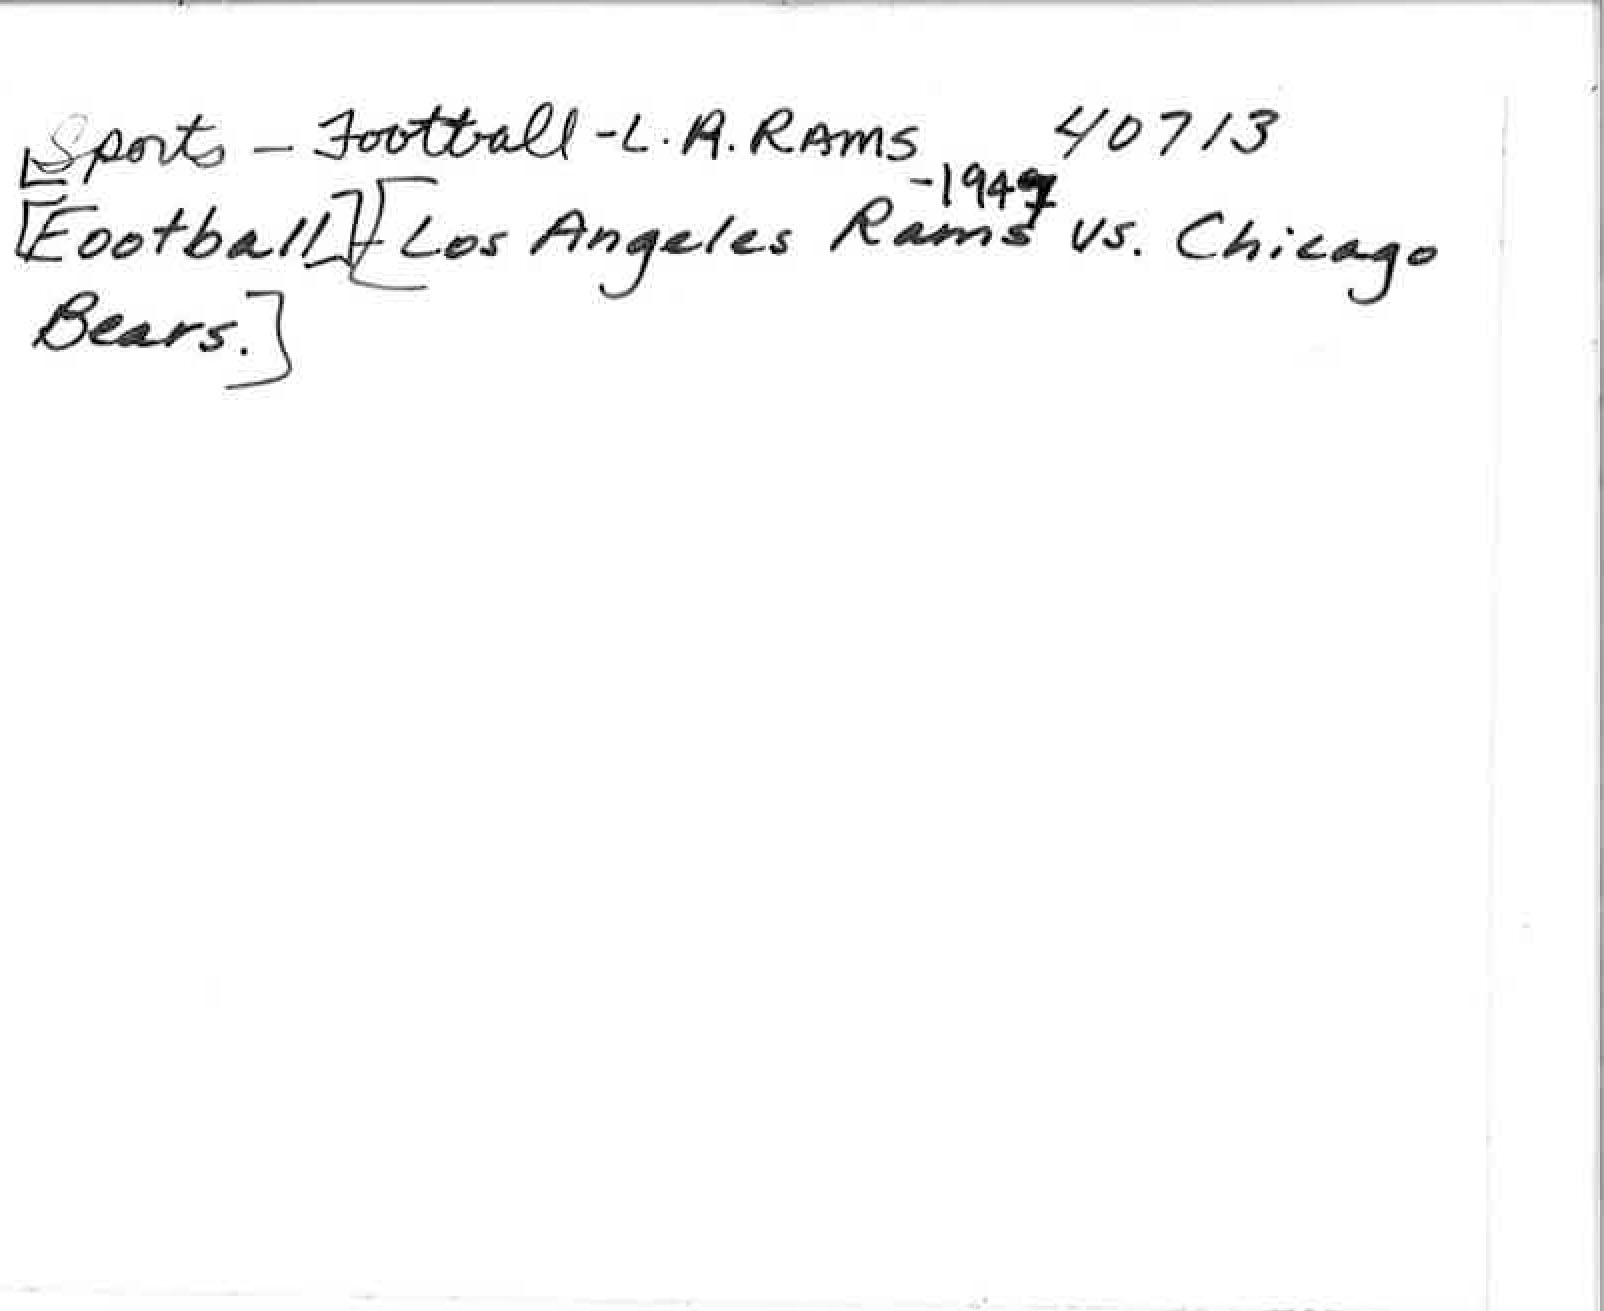 Sports - Football - L.A. RAMS 40713
[Football] - [Los Angeles Rams vs. Chicago
Bears.]